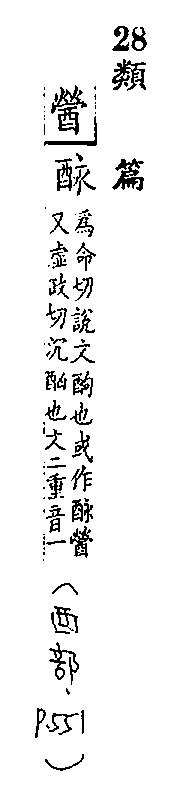 28類篇
醟
酳
為命切說文酗也或作酳醟
又虛政切沉酗也文二重音一
(酉部、
P.551)